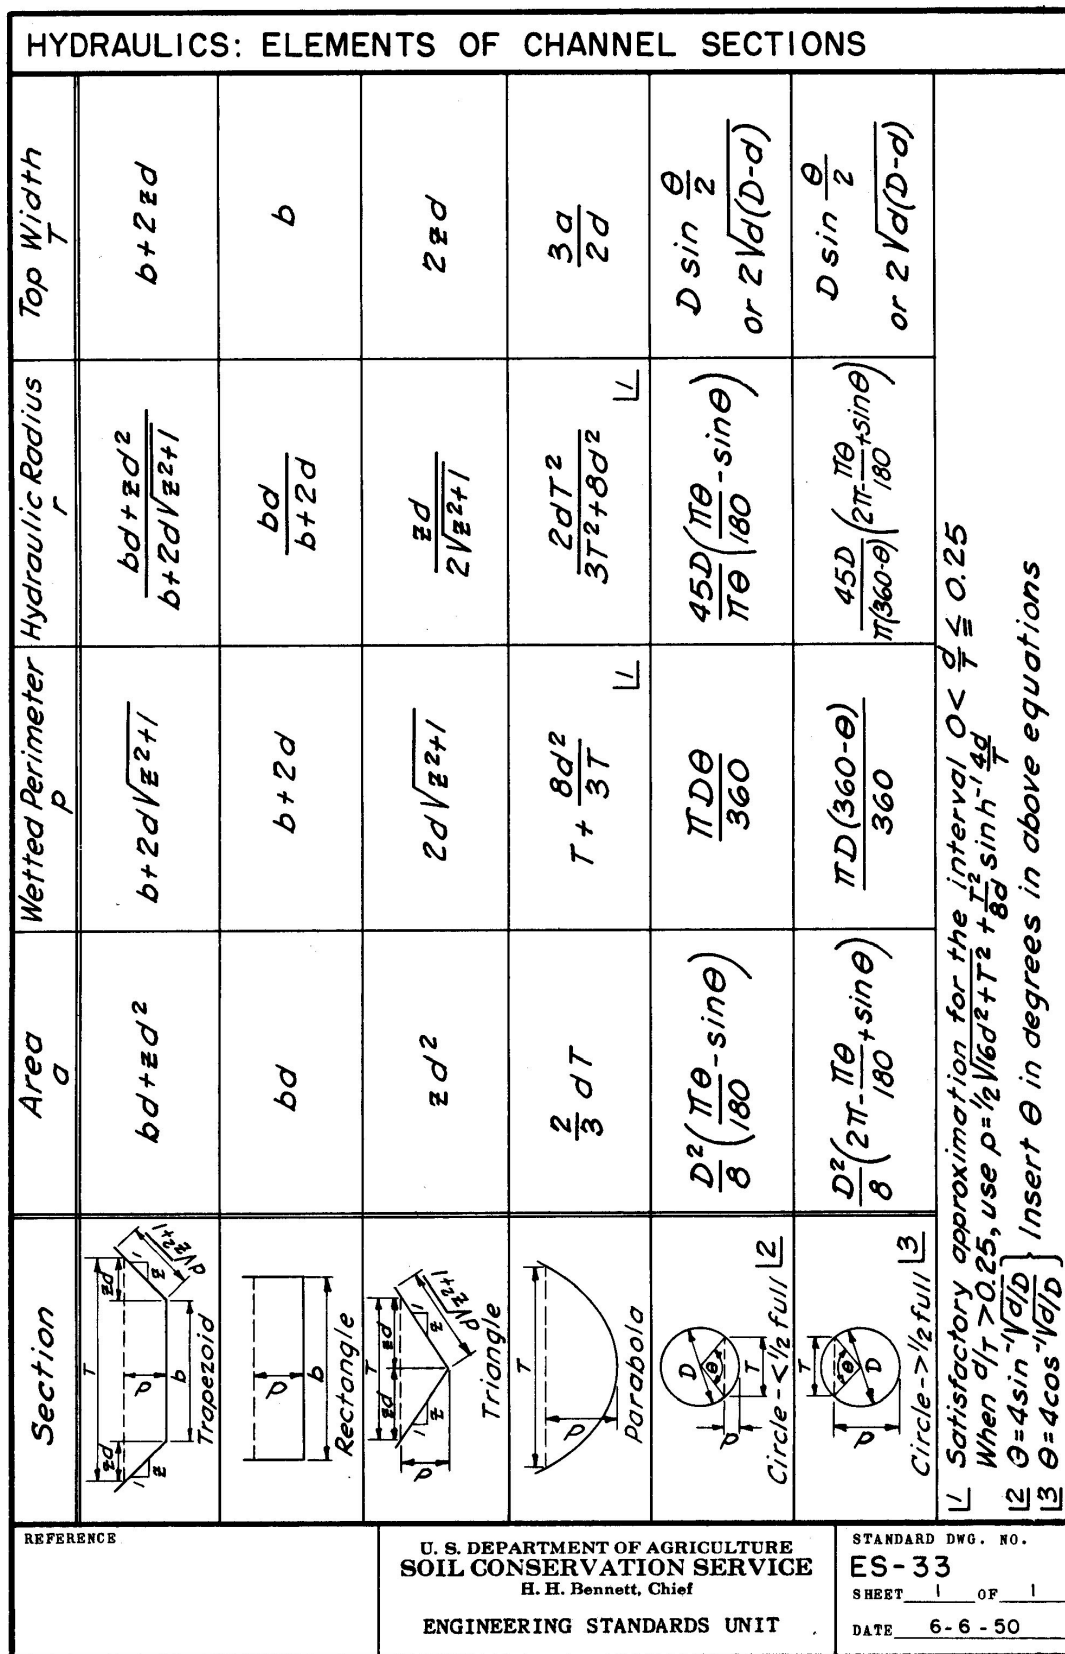 HYDRAULICS: ELEMENTS OF CHANNEL SECTIONS
Section
Area
a
Wetted Perimeter
p
Hydraulic Radius
r
Top Width
T
T
zd
d
b
1
z
1
z
zd
d√z²+1
Trapezoid
bd+zd²
b+2d√z²+1
bd+zd² / b+2d√z²+1
b+2zd
d
b
Rectangle
bd
b+2d
bd / b+2d
b
T
zd
zd
d
1
z
1
z
d√z²+1
Triangle
zd²
2d√z²+1
zd / 2√z²+1
2zd
T
d
Parabola
2/3 dT
T + 8d²/3T |1
2dT² / 3T²+8d² |1
3a/2d
D
θ
T
d
Circle-<1/2 full |2
D²/8 (πθ/180 - sinθ)
πDθ/360
45D/πθ (πθ/180 - sinθ)
D sin θ/2
or 2√d(D-d)
T
θ
D
d
Circle->1/2 full |3
D²/8 (2π - πθ/180 + sinθ)
πD(360-θ)/360
45D/π(360-θ) (2π - πθ/180 + sinθ)
D sin θ/2
or 2√d(D-d)
|1 Satisfactory approximation for the interval 0 < d/T ≦ 0.25
When d/T > 0.25, use p = 1/2 √16d²+T² + T²/8d sinh⁻¹ 4d/T
|2 θ=4sin⁻¹√d/D
|3 θ=4cos⁻¹√d/D
} Insert θ in degrees in above equations
REFERENCE
U. S. DEPARTMENT OF AGRICULTURE
SOIL CONSERVATION SERVICE
H. H. Bennett, Chief
ENGINEERING STANDARDS UNIT
STANDARD DWG. NO.
ES-33
SHEET 1 OF 1
DATE 6-6-50